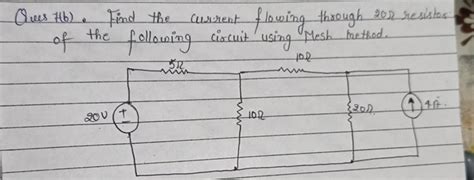 Ques 7(b). Find the current flowing through 20Ω resistor
of the following circuit using Mesh method.
5Ω
10Ω
20V
+
-
10Ω
20Ω
4A